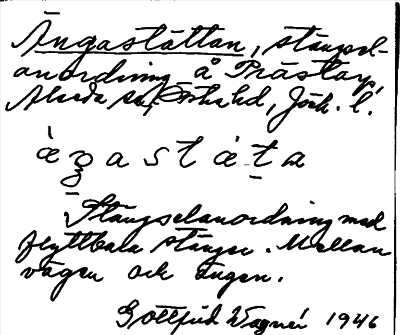 Ängastättan, stängsel-
anordning å Prästorp,
Alseda sn, Östra hd, Jönk. l.
Stängselanordning med
flyttbara stänger. Mellan
vägen och ängen.
Gottfrid Wagnér 1946